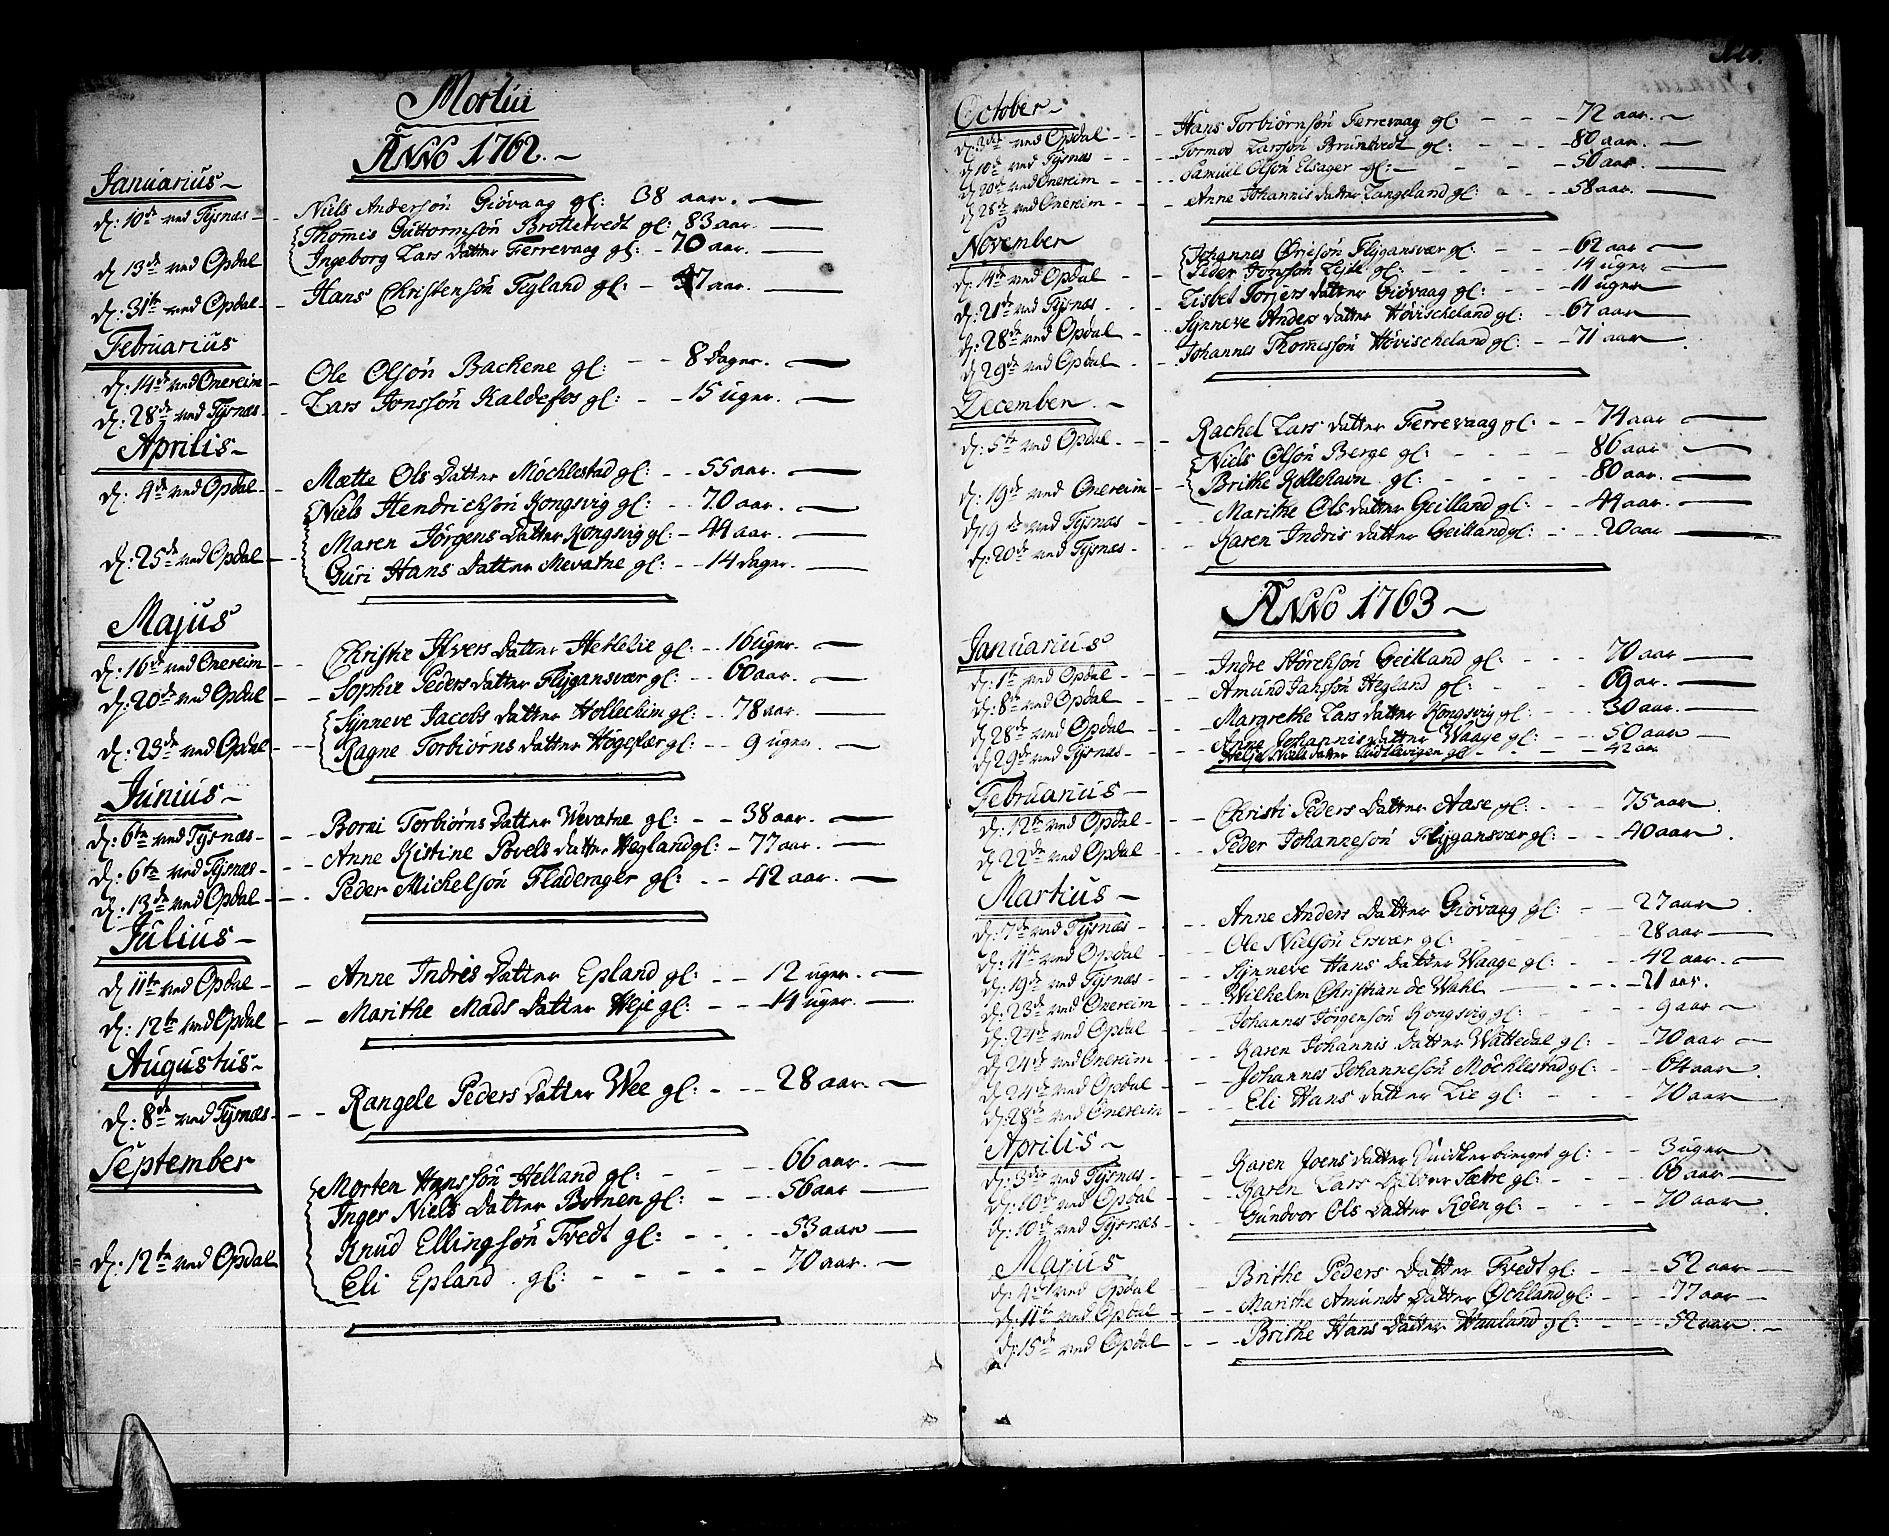 Mortui
Anno 1762.
Januarius
d: 10de ved Tysnæs - Niels Andersøn Giøvaag gl: 38 aar.
Thomis Guttormsøn Brottetvedt gl: 83 aar.
d 13de ved Opdal Ingeborg Lars Datter Ferrevaag gl: 70 aar.
d: 31te ved Opdal - Hans Christensøn Tegland gl: 47 aar.
Februarius
d: 14de ved Onereim - Ole Olsøn Bachene gl: 8 Dager.
d: 28de ved Tysnæs - Lars Jonssøn Kaldefos gl: 15 uger.
Aprilis
d: 4de ved Opdal - Mætte Ols Datter Møchlestad gl: 55 aar.
Niels Hendrichsøn Kongsvig gl: 70 aar.
Maren Jørgens Datter Kongsvig gl: 44 aar.
d: 25de ved Opdal - Guri Hans Datter Mevatne gl: 14 dager.
Majus
d: 16de ved Onereim - Christie Ifvers Datter Hettelie gl: 16 uger.
d: 20de ved Opdal - Sophie Peders Datter Flygansvær gl: 60 aar.
Synneve Jacobs Datter Holleckim gl: 78 aar.
d: 23de ved Opdal - Ragne Torbiørns Datter Høgefær gl: 9 uger.
Junius
d: 6te ved Tysnæs - Borni Torbiørns Datter Wevatne gl: 38 aar.
d: 6te ved Tysnæs - Anne Kistine Povels Datter Hegland gl: 77 aar.
d: 13de ved Opdal - Peder Michelsøn Fladerager gl: 42 aar.
Julius
d 11te ved Opdal - Anne Indres Datter Epland gl: 12 uger.
d: 12te ved Opdal - Marithe Mads Datter Heje gl: 14 uger.
Augustus
d: 8de ved Tysnæs - Rangele Peders Datter Wee gl: 28 aar.
September
Morten Hanssøn Helland gl: 66 aar.
Inger Niels Datter Bornen gl: 56 aar
Knud Ellingsøn Tvedt gl: 53 aar
d: 12te ved Opdal Eli Epland gl: 70 aar.
October
d: 3de ved Opdal - Hans Torbiørnsøn Ferrevaag gl: 72 aar.
d 10de ved Tysnæs - Tormod Larssøn Bruntvedt gl: 80 aar.
d 20de ved Onereim - Samuel Olsøn Elsager gl: 50 aar.
d 28de ved Onereim - Anne Johannis Datter Langeland gl: 58 aar.
November
Johannes Ørjesøn Flygansvær gl: 62 aar
d: 14de ved Opdal Peder Jonssøn gl: 14 uger
d: 21de ved Tysnæs - Lisbet Torjers Datter Giøvaag gl: 11 uger
d: 28de ved Opdal - Synneve Anders Datter Høvischeland gl: 67 aar
d: 29de ved Opdal - Johannes Thomissøn Høvischeland gl: 71 aar
December
d: 5te ved Opdal - Rachel Lars Datter Ferrevaag gl: 74 aar
Niels Olsøn Berge gl: 86 aar
d: 19de ved Onereim - Brithe Kollehavn gl: 80 aar.
d 19de ved Tysnæs - Marithe Ols Datter Geilland gl: 44 aar.
d: 20de ved Tysnæs - Karen Indris Datter Geilland gl: 20 aar
Anno 1763
Januarius
d: 1te ved Opdal - Indre Størchsøn Geilland gl: 70 aar
d: 8de ved Opdal - Amund Janssøn Hegland gl: 69 aar.
d: 28de ved Opdal - Margrethe Lars Datter Kongsvig gl: 30 aar.
d: 29de ved Tysnæs - Anne Johannis Datter Waage gl: 50 aar
Niels Datter gl: 42 aar
Februarius
d: 12te ved Opdal - Christi Peders Datter Aase gl: 75 aar
d: 22de ved Opdal - Peder Johannesøn Flygansvær gl: 40 aar
Martius
d: 7de ved Tysnæs - Anne Anders Datter Giøvaag gl: 27 aar
d: 11te ved Opdal - Ole Nielsøn Ersvær gl: 28 aar
d: 19de ved Tysnæs - Synneve Hans Datter Waage gl: 42 aar.
d: 23de ved Onereim - Wilhelm Christian de Wahl 21 aar.
d: 24de ved Opdal - Johannes Jørgensøn Kongsvig gl: 9 aar
d: 24de ved Onereim - Karen Johannis Datter Wattedal gl: 70 aar
d: 24de ved Opdal - Johannes Johannesøn Møchlestad gl: 64 aar
d: 28de ved Onereim - Eli Hans Datter Lie gl: 70 aar
Aprilis
d: 3de ved Tysnæs - Karen Joens Datter gl: 3 uger
d: 10de ved Opdal - Karen Lars Datter Sætre gl: 66 aar
d: 10de ved Tysnæs - Gundvor Ols Datter Røen gl: 70 aar
Majus
d: 4de ved Opdal - Brithe Peders Datter Tvedt gl: 52 aar
d: 11te ved Opdal - Marithe Amunds Datter Øchland gl: 77 aar
d: 15de ved Opdal - Brithe Hans Datter Hauland gl: 52 aar.